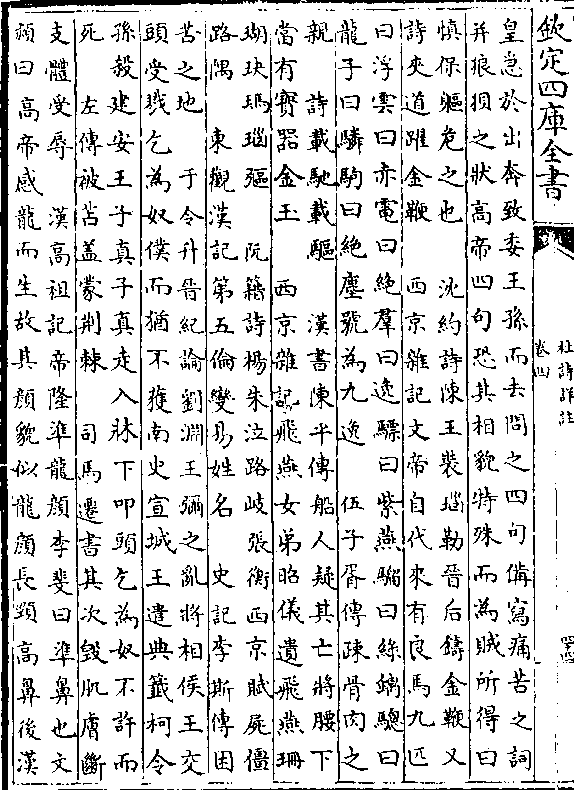 欽定四庫全書
杜詩詳註
卷四
皇急於出奔致委王孫而去問之四句備寫痛苦之詞
并狼狽之狀高帝四句恐其相貌特殊而為賊所得曰
慎保軀危之也　沈約詩陳王裝瑙勒晉后鑄金鞭又
詩夾道躍金鞭　西京雜記文帝自代來有良馬九匹
曰浮雲曰赤電曰絶羣曰逸驃曰紫燕騮曰綠螭驄曰
龍子曰驎駒曰絶塵號為九逸　伍子胥傳疎骨肉之
親　詩載馳載驅　漢書陳平傳船人疑其亡將腰下
當有寳器金玉　西京雜記飛燕女弟昭儀遺飛燕珊
瑚玦瑪瑙彄　阮籍詩楊朱泣路岐張衡西京賦屍僵
路隅　東觀漢記第五倫變易姓名　史記李斯傳困
苦之地　于令升晉紀論劉淵王彌之亂將相侯王交
頭受戮乞為奴僕而猶不獲南史宣城王遣典籖柯令
孫殺建安王子真子真走入牀下叩頭乞為奴不許而
死　左傳被苫盖蒙荆棘　司馬遷書其次毁肌膚斷
支體受辱　漢高祖記帝隆準龍顔李斐曰準鼻也文
頴曰高帝感龍而生故其顔貌似龍顔長頸高鼻後漢